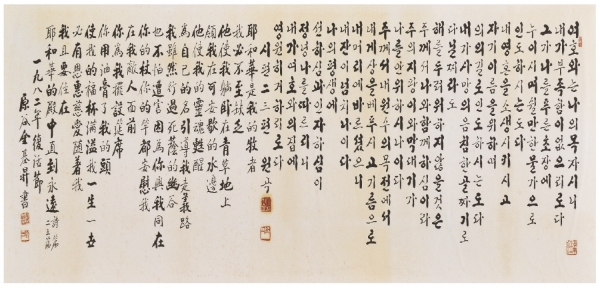 여호와는 나의 목자시니
내가 부족함이 없으리로다
그가 나를 푸른 초장에
누이시며 쉴만한 물가으로
인도하시는도다
내 영혼을 소생시키시고
자기 이름을 위하여
의의 길로 인도하시는도다
내가 사망의 음침한 골짜기로
다닐지라도
해를 두려워하지 않을것은
주께서 나와 함께하심이라
주의 지팡이와 막대기가
나를 안위하시나이다
주께서 내 원수의 목전에서
내게 상을 베푸시고 기름으로
내 머리에 바르셨으니
내 잔이 넘치나이다
나의 평생에
선하심과 인자하심이
정녕 나를 따르리니
내가 여호와의 집에
영원히 거하리로다
시편 二三편 원곡
耶和華是我的牧者
我必不至缺乏
他使我躺臥在青草地上
領我在可安歇的水邊
他使我的靈魂甦醒
為自己的名引導我走義路
我雖然行過死蔭的幽谷
也不怕遭害因為你與我同在
你的杖你的竿都安慰我
在我敵人面前
你為我擺設筵席
你用油膏了我的頭
使我的福杯滿溢我一生一世
必有恩惠慈愛隨着我
我且要住在
耶和華的殿中直到永遠 詩篇二三篇
一九八二年復活節
原谷金基昇書